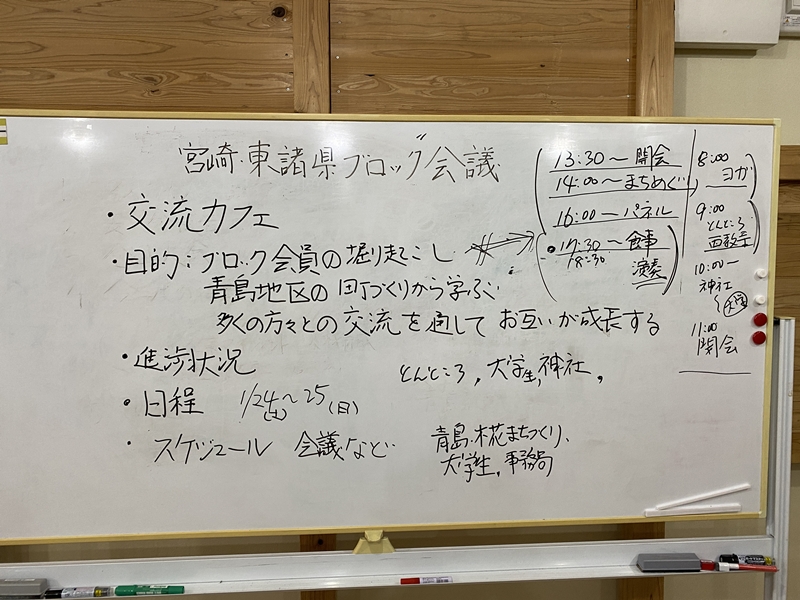 宮崎・東諸県ブロック会議
・交流カフェ
・目的:ブロック会員の掘り起こし
青島地区の町づくりから学ぶ
多くの方々との交流を通して お互いが成長する
・進渉状況
とんところ,大学生,神社,
・日程 1/24(土)〜25(日)
・スケジュール 会議など
青島・木花まちづくり、
大学生,事務局
13:30〜開会
14:00〜まちめぐり
16:00〜パネル
・17:30〜食事
18:30 演奏
8:00
ヨガ
9:00
とんところ
10:00〜
神社
11:00
閉会